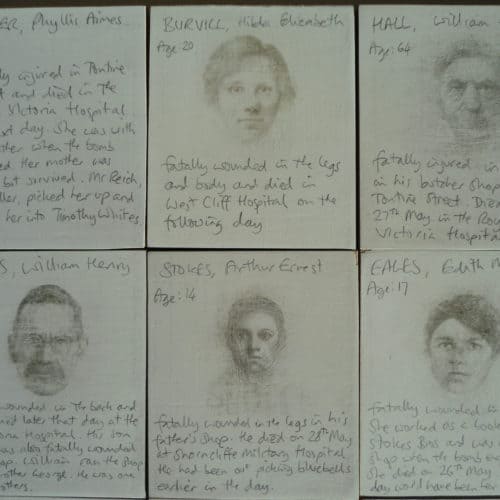 ER, Phyllis Aimes
ly injured in Tontine
t and died in the
Victoria Hospital
xt day. She was with
ther when the bomb
ed Her mother was
but survived. Mr Reich,
ller, picked her up and
her into Timothy Whites
BURVILL, Hilda Elizabeth
Age: 20
fatally wounded in the legs
and body and died in
West Cliff Hospital on the
following day
HALL, William
Age: 64
fatally injured in
in his butcher shop
Tontine Street. Died
27th May in the Roy
Victoria Hospital
S, William Henry
wounded in the back and
ied later that day at the
Hospital. His son
was also fatally wounded
op. William ran the shop
other George. He was one
others.
STOKES, Arthur Ernest
Age: 14
fatally wounded in the legs in his
father's shop. He died on 28th May
at Shorncliffe Military Hospital
He had been out picking bluebells
earlier in the day.
EALES, Edith M
Age: 17
fatally wounded in
She worked as a book
Stokes Bros and was
shop when the bomb
She died on 26th May
day would have been her